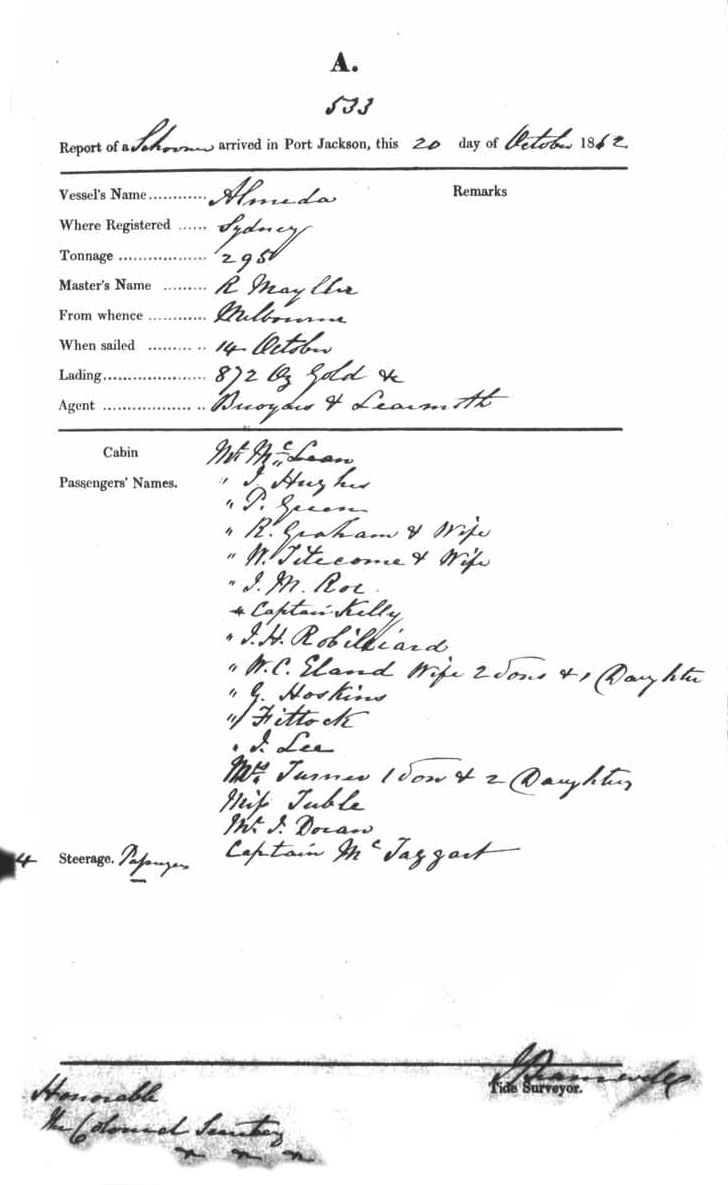 A.
533
Report of a Schooner arrived in Port Jackson, this 20 day of October 1862
Vessel's Name............ Almeda Remarks
Where Registered ...... Sydney
Tonnage .................. 295
Master's Name ......... R
From whence ............ Melbourne
When sailed ............ 14 October
Lading...................... 872 Oz Gold &c
Agent .................... & Learmonth
Cabin Mr. McLean
Passengers' Names. " J. Hughes
" P. Green
" R. Graham & Wife
" W. Titecome & Wife
" J. M. Roe
" Captain Kelly
" J. H. Robilliard
" W. C. Eland Wife 2 Sons & 1 Daughter
" G. Hoskins
" Fittock
" J. Lee
Mrs. Turner 1 Son & 2 Daughters
Miss Tuble
Mr. J. Doran
4 Steerage. Passengers Captain McTaggart
Tide Surveyor.
Honorable
The Colonial Secretary